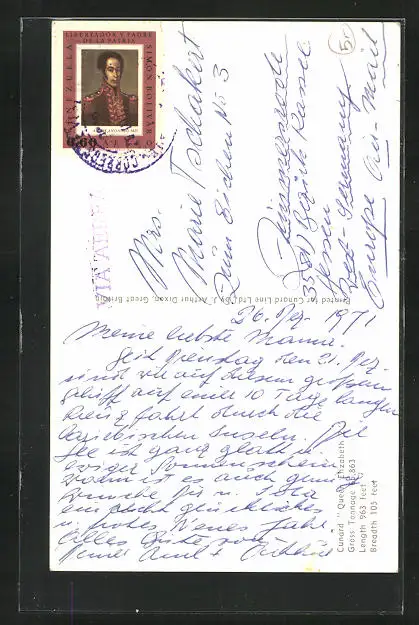 LIBERTADOR Y PADRE
DE LA PATRIA
SIMON BOLIVAR
VENEZUELA
VIA AEREA
5,-
Mrs.
Marie Tschakert
Zum Eichen No 3
35 Kassel
Hessen
West-Germany
Europe Air-Mail
Printed for Cunard Line Ltd. by J. Arthur Dixon, Great Britain
26. Dez. 1971
Meine liebste Mamie.
Seit Dienstag den 21. Dez.
sind wir auf diesem grossen
Schiff auf einer 10 Tage langen
Kreuzfahrt durch die
Inseln. Die
See ist ganz glatt u.
ewiger Sonnenschein,
warm ist es auch genug
Wünsche Dir u.
ein recht glückliches
u. frohes Neues Jahr.
Alles Gute von
Cunard "Queen Elizabeth 2"
Gross Tonnage 65,863
Length 963 feet
Breadth 105 feet